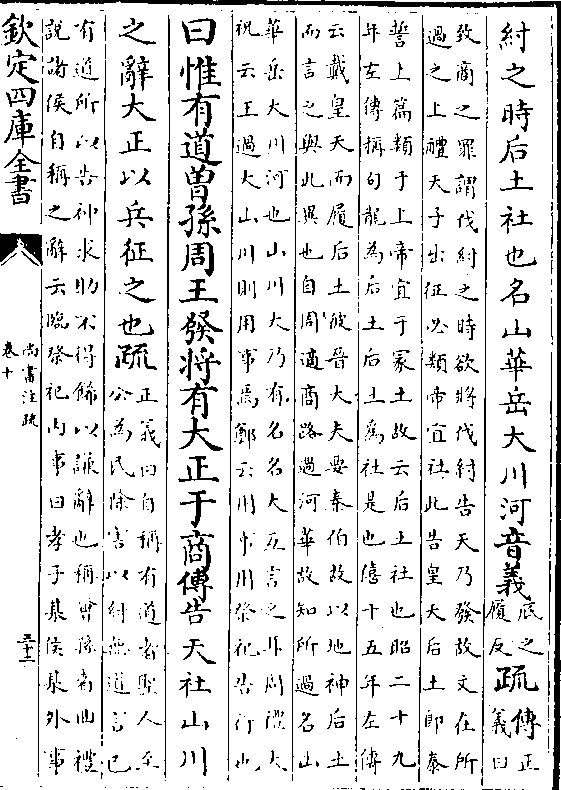 紂之時后土社也名山華岳大川河音義底之履反疏傳正義曰
致商之罪謂伐紂之時欲將伐紂告天乃發故文在所
過之上禮天子出征必類帝宜社此告皇天后土卽泰
誓上篇類于上帝宜于冢土故云后土社也昭二十九
年左傳稱句龍為后土后土為社是也僖十五年左傳
云戴皇天而履后土彼晉大夫要秦伯故以地神后土
而言之與此異也自周適商路過河華故知所過名山
華岳大川河也山川大乃有名名大互言之耳周禮大
祝云王過大山川則用事焉鄭云用事用祭祀告行也
曰惟有道曾孫周王發將有大正于商傳告天社山川
之辭大正以兵征之也疏正義曰自稱有道者聖人至
公為民除害以紂無道言已
有道所以告神求助不得飾以謙辭也稱曾孫者曲禮
說諸侯自稱之辭云臨祭祀内事曰孝子某侯某外事
欽定四庫全書
尚書注疏
卷十
三十二